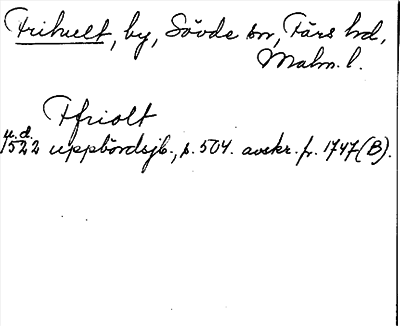 Frihult, by, Sövde sn, Färs hd,
Malm. l.
Ffriolt
u.d.
1522 uppbördsjb., s. 504. avskr. fr. 1747 (B).